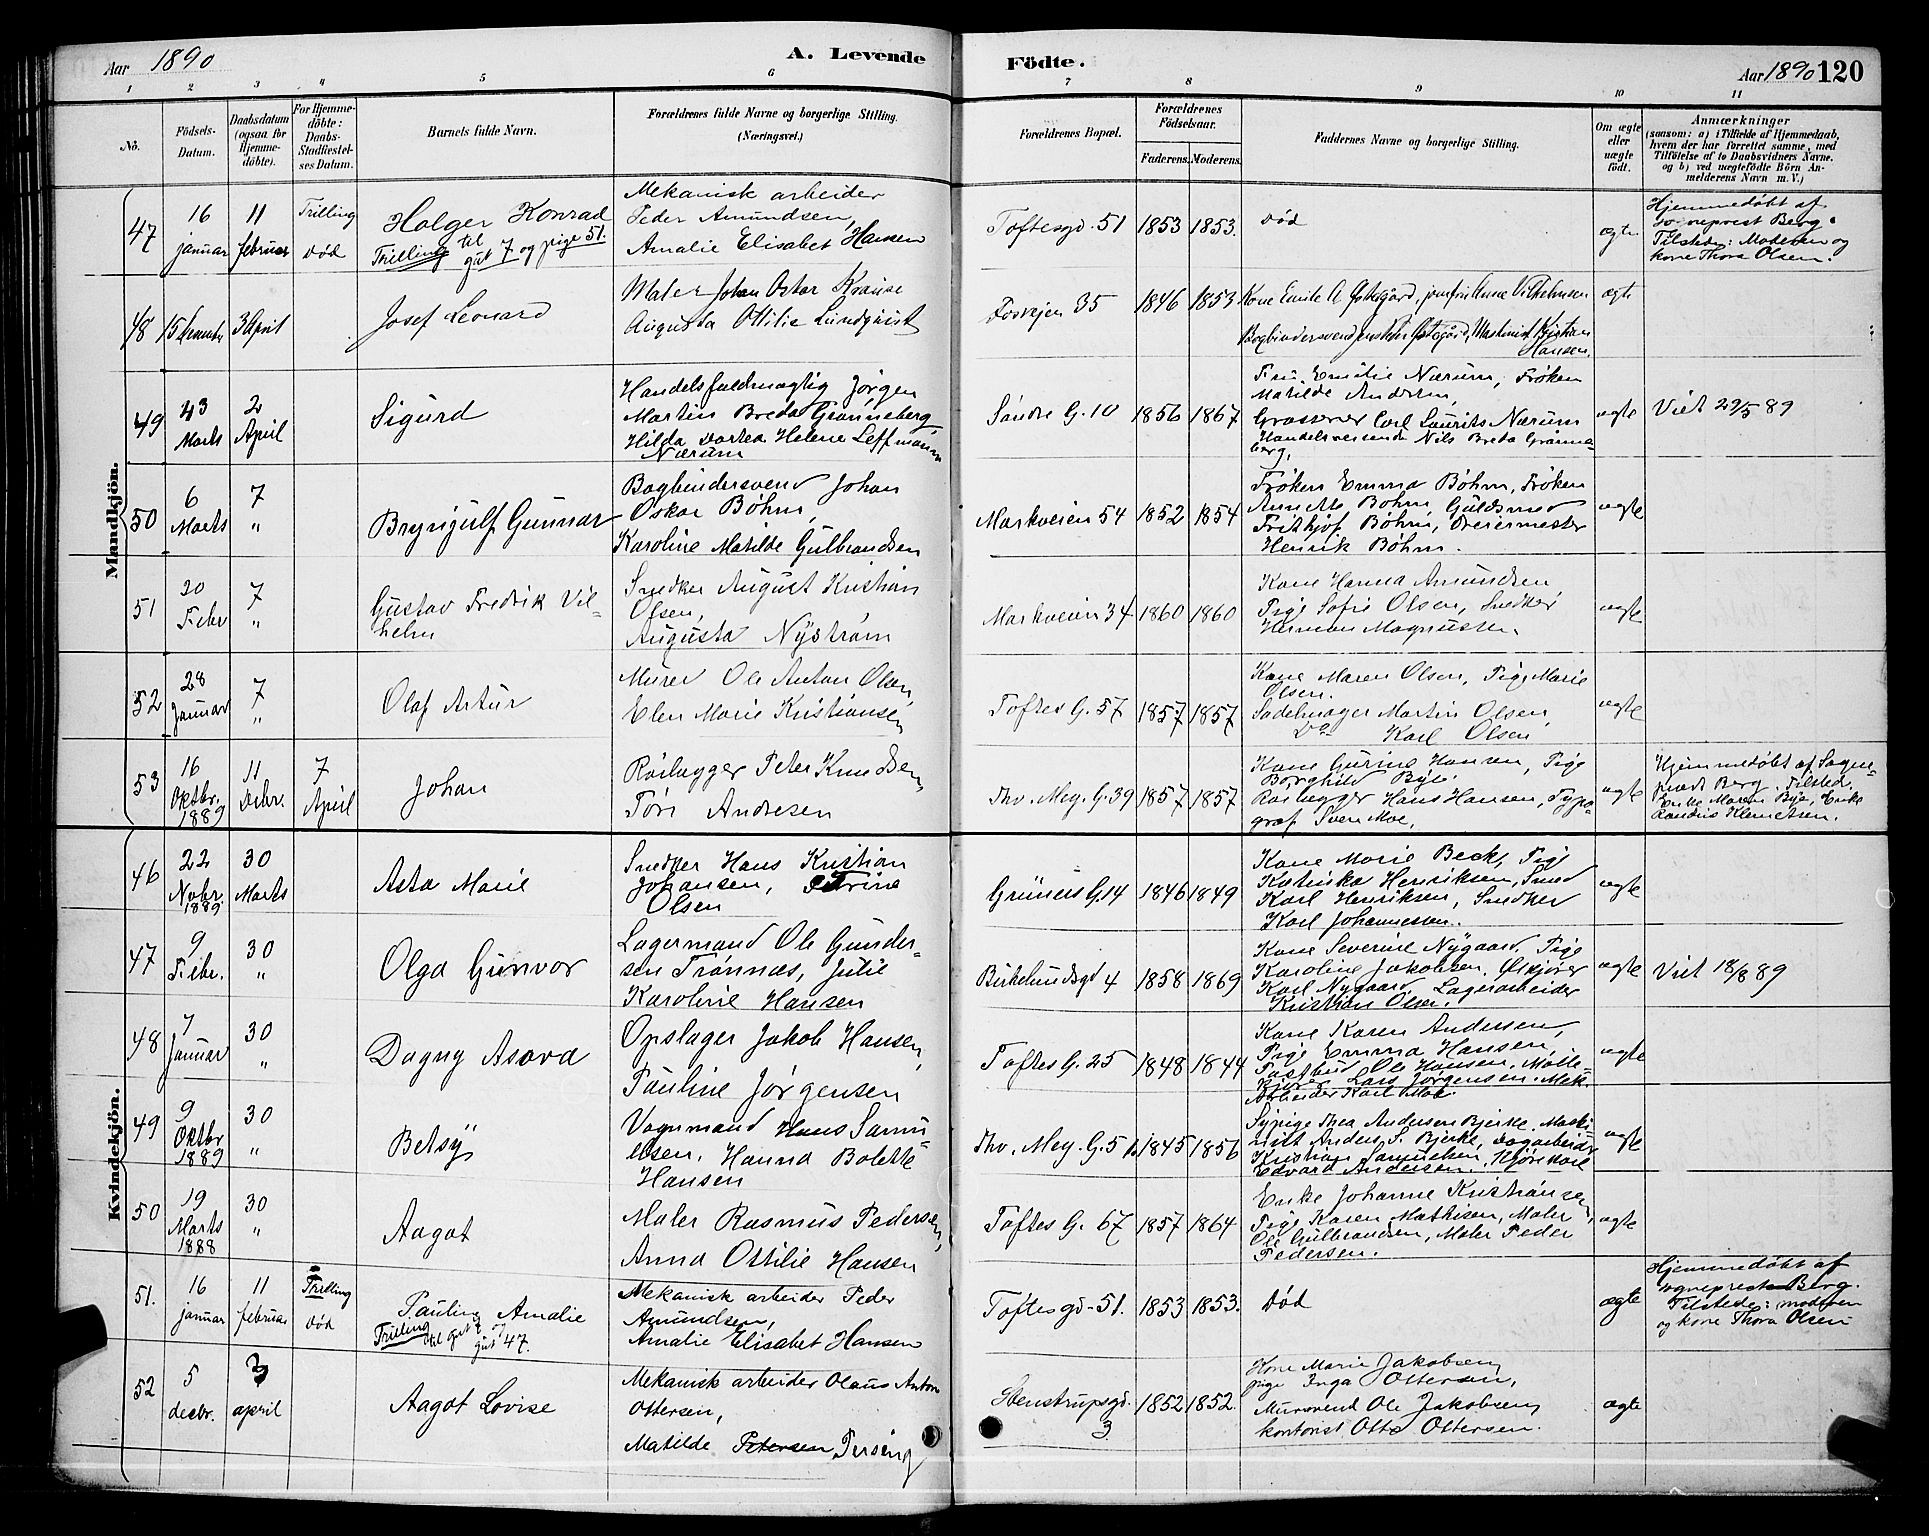 Aar 1890
A. Levende
Födte.
Aar 1890 120
1 2 3 4 5 6 7 8 9 10 11
No.
Födsels-
Datum.
Daabsdatum
(ogsaa for
Hjemme-
döbte).
For Hjemme-
döbte:
Daabs-
Stadfæstel-
ses Datum.
Barnets fulde Navn.
Forældrenes fulde Navne og borgerlige Stilling.
(Næringsvei.)
Forældrenes Bopæl.
Forældrenes
Födselsaar.
Faderens. Moderens.
Faddernes Navne og borgerlige Stilling.
Om ægte
eller
uægte
födt.
Anmærkninger
(saasom: a) i Tilfælde af Hjemmedaab,
hvem der har forrettet samme, med
Tilföielse af to Daabsvidners Navne,
og b) ved uægtefödte Börn An-
melderens Navn m. V.)
Mandkjön.
47
16
januar
11
februar
Trilling
Död
Holger Konrad
Trilling til
gut 7 og pige 51.
Mekanisk arbeider
Peder Amundsen,
Amalie Elisabet Hansen
Toftesgd. 51
1853
1853.
Död
ægte
Hjemmedøbt af
sogneprest Berg.
Tilstede: Moderen og
kone Thora Olsen.
48
3 April
Josef Leonard
Maler Johan Oskar Krause
Augusta Ottilie Lundquist
Fosvejen 35
1846
1853
Kone Emilie A Østegård, jomfru Anna Vilhelmsen
Østegård, Maskinist Kristian
Hansen.
ægte
49
Marts
2
April
Sigurd
Handelsfuldmægtig Jørgen
Martin Breda Grønneberg,
Hilda Dortea Helene Leffmann
Nærum
Søndre G. 10
1856
1867
Fru Emilie Nærum, Frøken
Matilde Andersen,
Grosserer Carl Laurits Nærum
Handelsreisende Nils Breda Grønne-
berg.
ægte
Viet 29/5 89
50
6
Marts
7
"
Brynjulf Gunnar
Bogbindersvend Johan
Oskar Bøhm,
Karoline Matilde Gulbrandsen
Markveien 54
1852
1854
Frøken Emma Bøhm, Frøken
Annette Bøhm, Guldsmed
Frithjof Bøhm, Dreiermester
Henrik Bøhm.
ægte
51
20
Febr
7
"
Gustav Fredrik Vil-
helm
Snedker August Kristian
Olsen,
Augusta Nyström
Markveien 34
1860
1860
Kone Hanna Amundsen
Pige Sofie Olsen, Snedker
Herman Magnussen.
ægte
52
28
Januar
7
"
Olaf Artur
Murer Ole Anton Olsen,
Elen Marie Kristiansen
Toftes G. 57
1857
1857
Kone Maren Olsen, Pige Marie
Olsen.
Sadelmager Martin Olsen,
Do Karl Olsen
ægte
53
16
Oktbr.
1889
11
Debr.
7
April
Johan
Rørlægger Peter Knudsen,
Töri Andresen
Thv. Mey. G. 39
1857
1857
Kone Gurine Hansen, Pige
Borghild Bye.
Rørlægger Hans Hansen, Typo-
graf Sven Moe.
ægte
Hjemmedøbt af Sogne-
prest Berg. Tilsted.
Enke Maren Bye, Enke
Randis Klemetsen.
Kvindekjön.
46
22
Novbr.
1889
30
Marts
Asta Marie
Snedker Hans Kristian
Johansen, Petrine
Olsen
Grüners G. 14
1846
1849
Kone Marie Beck, Pige
Katinka Henriksen, Smed
Karl Henriksen, Snedker
Karl Johannessen.
ægte
47
9
Febr.
30
"
Olga Gunvor
Lagermand Ole Gunder-
sen Trønnæs, Julie
Karoline Hansen
Birkelundsgd 4
1858
1869
Kone Severine Nygaard, Pige
Karoline Jakobsen, Ølkjører
Karl Nygaard, Lagerarbeider
Kristian Olsen.
ægte
Viet 18/8 89
48
7
Januar
30
"
Dagny Asora
Opslager Jakob Hansen,
Pauline Jørgensen
Toftes G. 25
1848
1844
Kone Karen Andersen,
Pige Emma Hansen,
Postbud Ole Hansen, Mølle-
kjører Lars Jørgensen. Mek.
Arbeider Karl Moe.
ægte
49
9
Oktbr
1889
30
"
Betsy
Vognmand Hans Samu-
elsen, Hanna Bolette
Hansen
Thv. Mey. G. 51
1845
1856
Sypige Thea Andersen Bjerke. Maski-
nist Anders S. Bjerke, Dagarbeider
Kristian Samuelsen, Kjørekarl
Edvard Andersen.
ægte
50
19
Marts
1888
30
"
Aagot
Maler Rasmus Pedersen,
Anna Ottilie Hansen
Toftes G. 67
1857
1864
Enke Johanne Kristiansen,
Pige Karen Mathisen, Maler
Ole Gulbrandsen, Maler Peder
Pedersen.
ægte
51.
16
januar
11
februar
Trilling
Död
Pauline Amalie
Trilling
til gut 7 og
gut 47.
Mekanisk arbeider Peder
Amundsen,
Amalie Elisabet Hansen
Toftesgd. 51.
1853
1853.
Död
ægte
Hjemmedøbt af
sogneprest Berg.
Tilstede: moderen
og kone Thora Olsen
52
5
decbr.
3
april
Aagot Lovise
Mekanisk arbeider Olaus Anton
Ottersen,
Matilde Petersen Persen
Stenstrupsgd.
3
1852
1852.
Kone Marie Jakobsen,
pige Inga Ottersen,
Mursvend Ole Jakobsen,
kontorist Otto Ottersen.
ægte